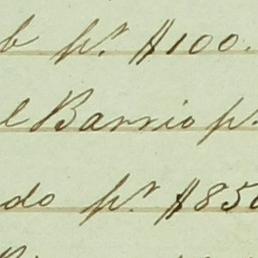 b pr. $100.
l Barrio pr.
do pr. $850